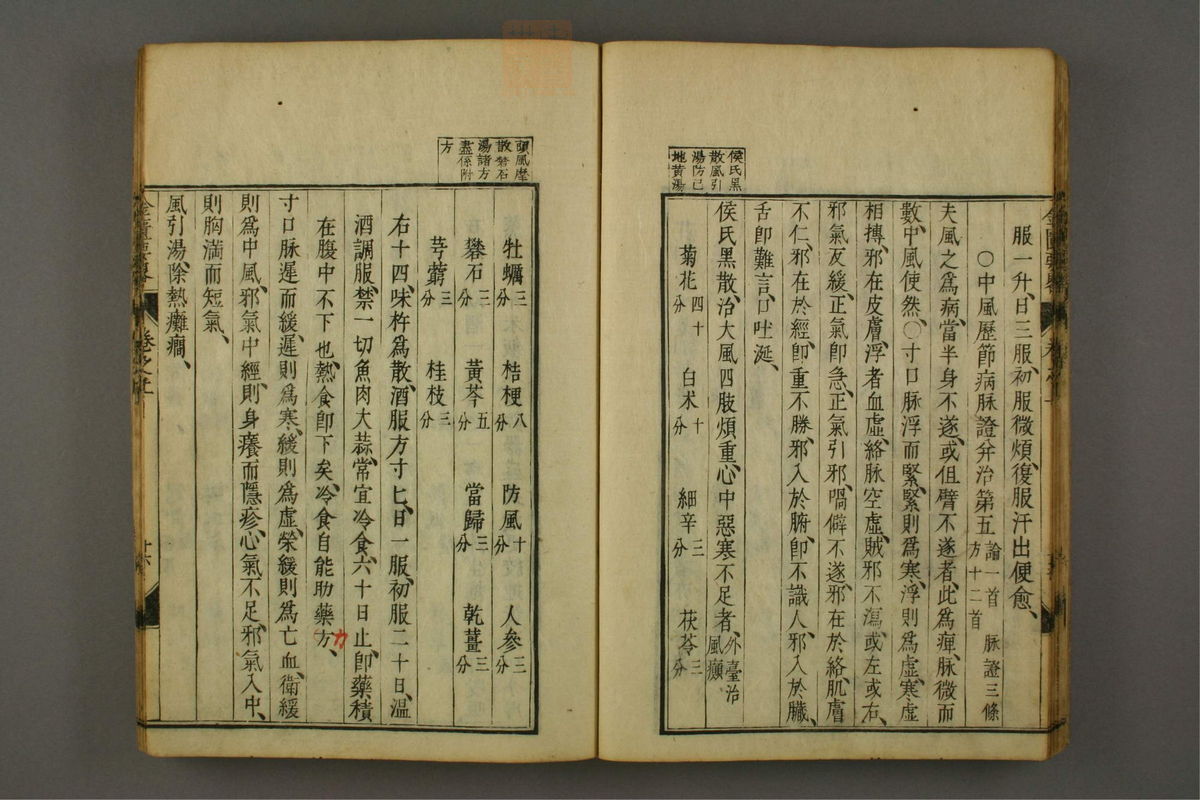 侯氏黒
散風引
湯防己
地黄湯
服一升、日三服、初服微煩、復服汗出便愈、
〇中風歷節病脉證并治第五 論一首 脉證三條 方十二首
夫風之爲病、當半身不遂、或但臂不遂者、此爲痺、脉微而
數、中風使然、〇寸口脉浮而緊、緊則爲寒、浮則爲虛、寒虛
相搏、邪在皮膚、浮者血虛、絡脉空虛、賊邪不瀉、或左或右、
邪氣反緩、正氣即急、正氣引邪、喎僻不遂、邪在於絡、肌膚
不仁、邪在於經、即重不勝、邪入於腑、即不識人、邪入於臟、
舌即難言、口吐涎、
侯氏黑散、治大風四肢煩重、心中惡寒不足者、外臺治風癲
菊花四十分 白术十分 細辛三分 茯苓三分
頭風摩
散礬石
湯諸方
蓋係附
方
牡蠣三分 桔梗八分 防風十分 人參三分
礬石三分 黃芩五分 當歸三分 乾薑三分
芎藭三分 桂枝三分
右十四味、杵爲散、酒服方寸匕、日一服、初服二十日、溫
酒調服、禁一切魚肉大蒜、常宜冷食、六十日止、即藥積
在腹中不下也、熱食即下矣、冷食自能助藥方、
力
寸口脉遲而緩、遲則爲寒、緩則爲虛、榮緩則爲亡血、衛緩
則爲中風、邪氣中經、則身癢而隱疹、心氣不足、邪氣入中、
則胸満而短氣、
風引湯、除熱癱癇、
卷之上
十六